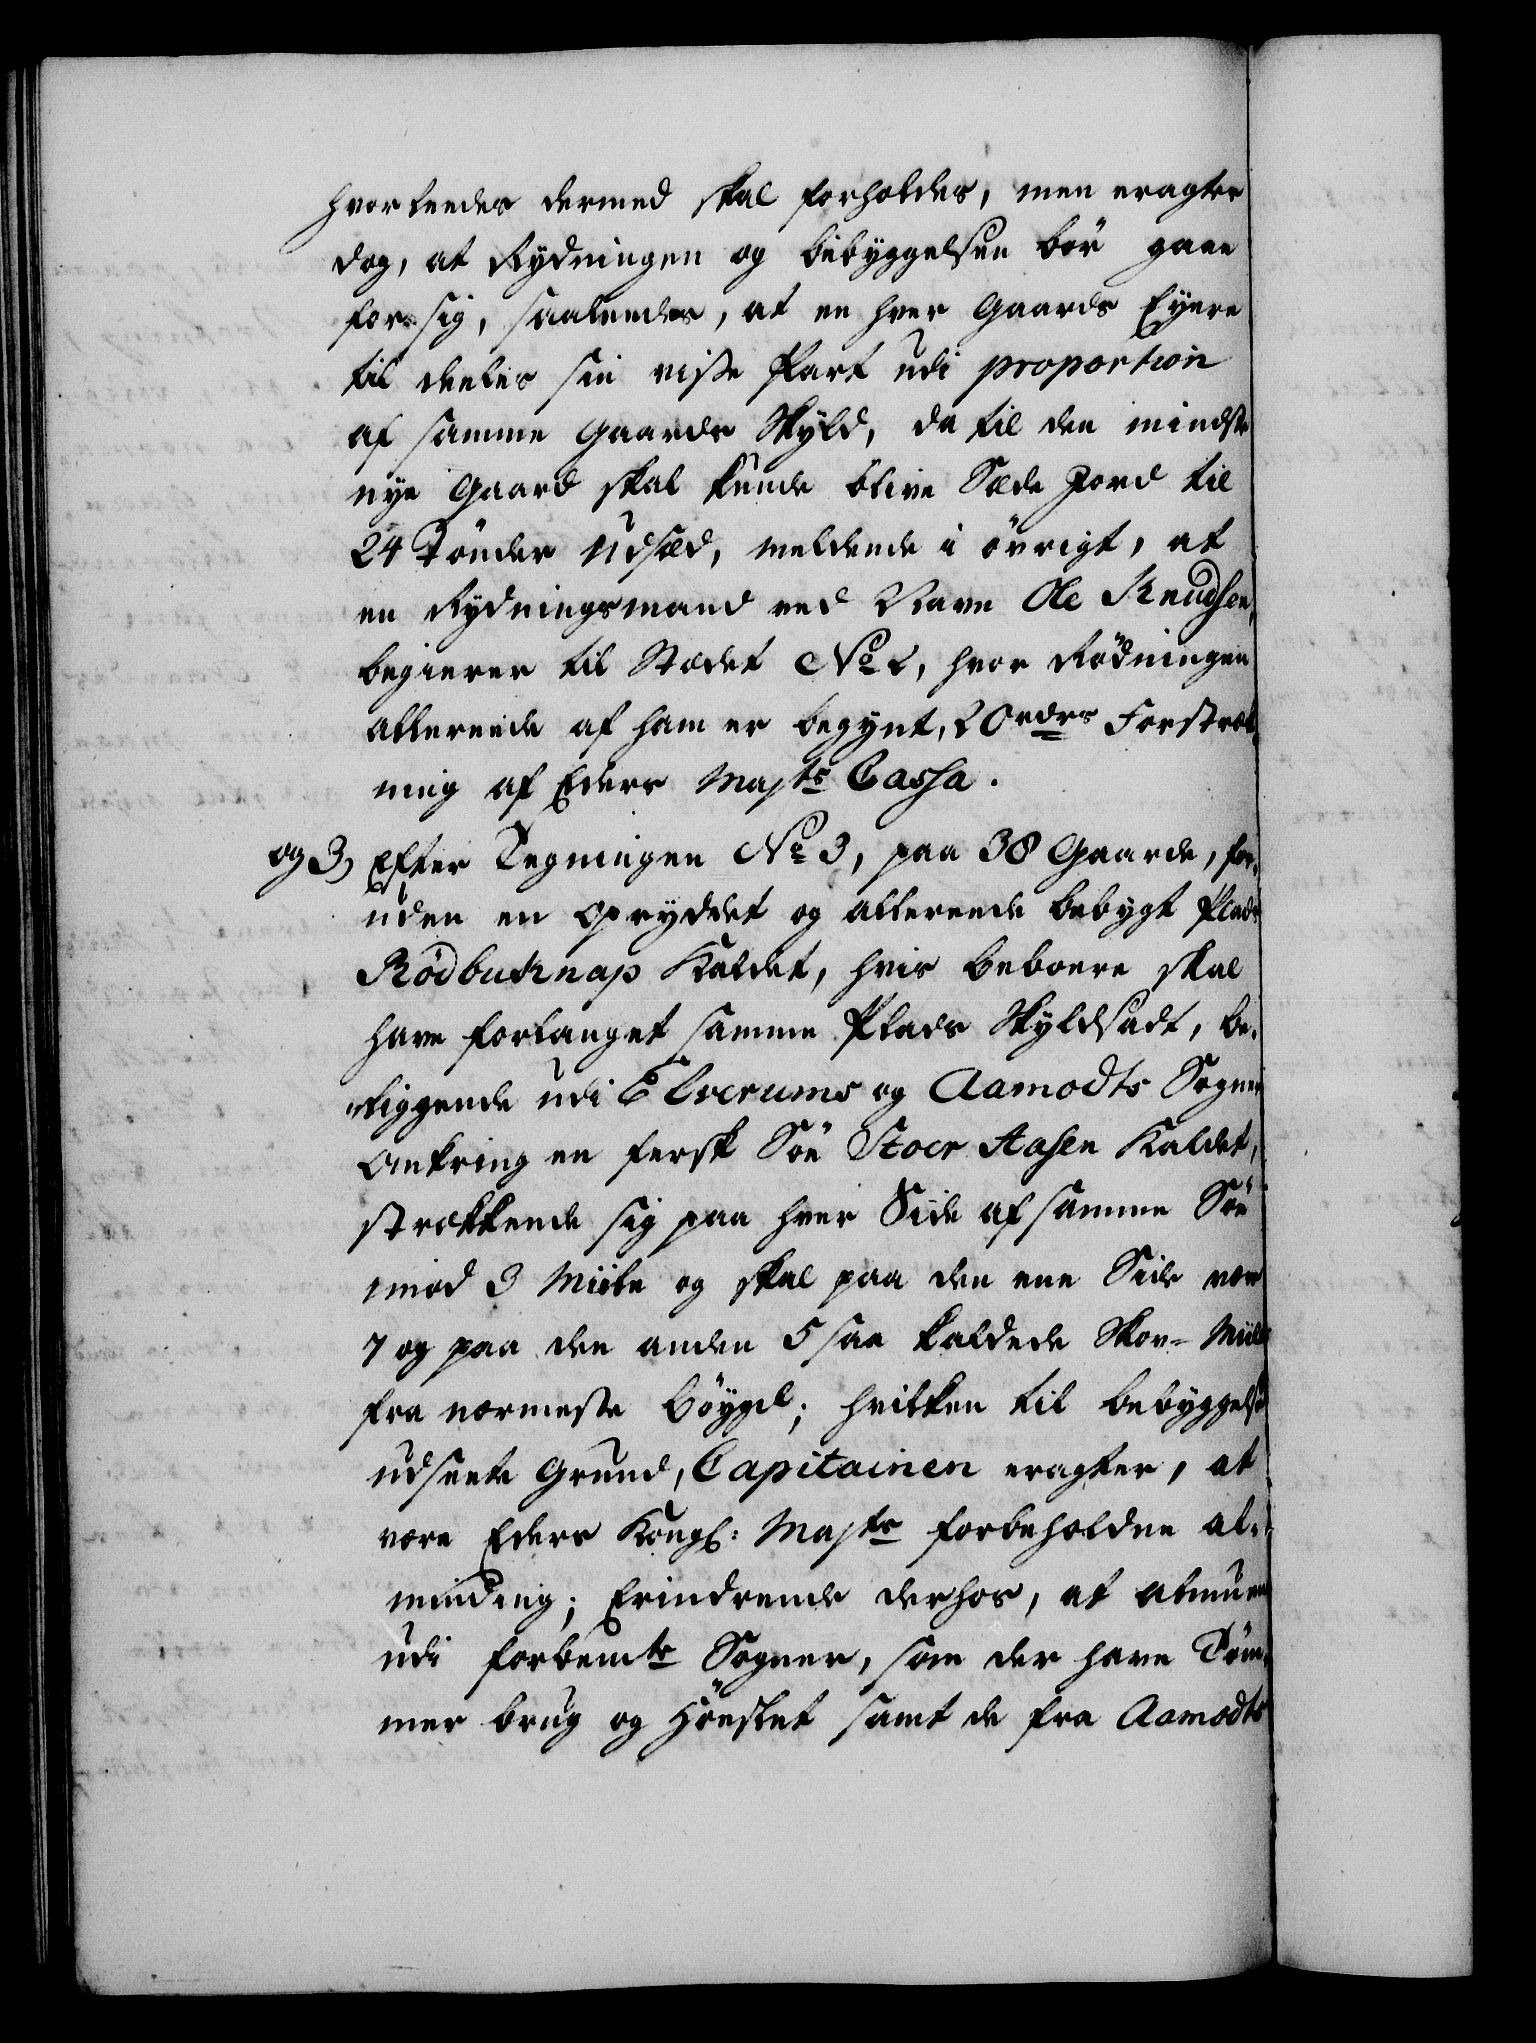 hvorleedes dermed skal forholdes, men eragter
dog, at Rydningen og bebyggelsen bör gaae
for sig, saaleedes, at en hver Gaards Eyere
til deeles sin visse Part udi proportion
af samme Gaards Skyld, da til den mindste
nye Gaard skal kunde blive Sæde Jord til
24 Tönder Udsæd, meldende i övrigt, at
en Rydningsmand ved Navn Ole Knudsen,
begierer til Stædet No 2, hvor Rödningen
allereede af ham er begynt, 20 rdrs Forstræk-
ning af Eders Majts Cassa.
og 3, Efter Tegningen No 3, paa 38 Gaarde, for-
uden en opryddet og allereede bebygt Plads
Rödbuknap Kaldet, hvis beboere skal
have forlanget samme Plads Skyldsadt, be-
liggende udi Elverums og Aamodts Sogner
omkring en fersk Söe Stoer Aasen Kaldet,
strækkende sig paa hver Side af samme Söe
imod 3 Miile og skal paa den ene Side være
7 og paa den anden 5 saa kaldede Skov-Miile
fra nærmeste böygd; hvilken til bebyggelse
udseete Grund, Capitainen eragter, at
være Eders Kongl: Majts forbeholden al-
minding; Erindrende derhos, at almuen
udi forbemte Sogner, som der have Töm-
mer brug og Höeslet samt de fra Aamodts